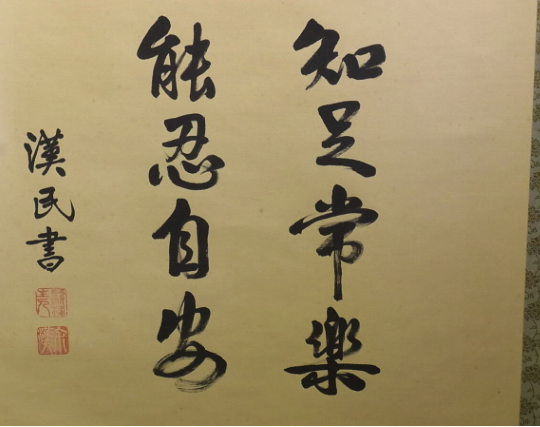 知足常樂
能忍自安
漢民書